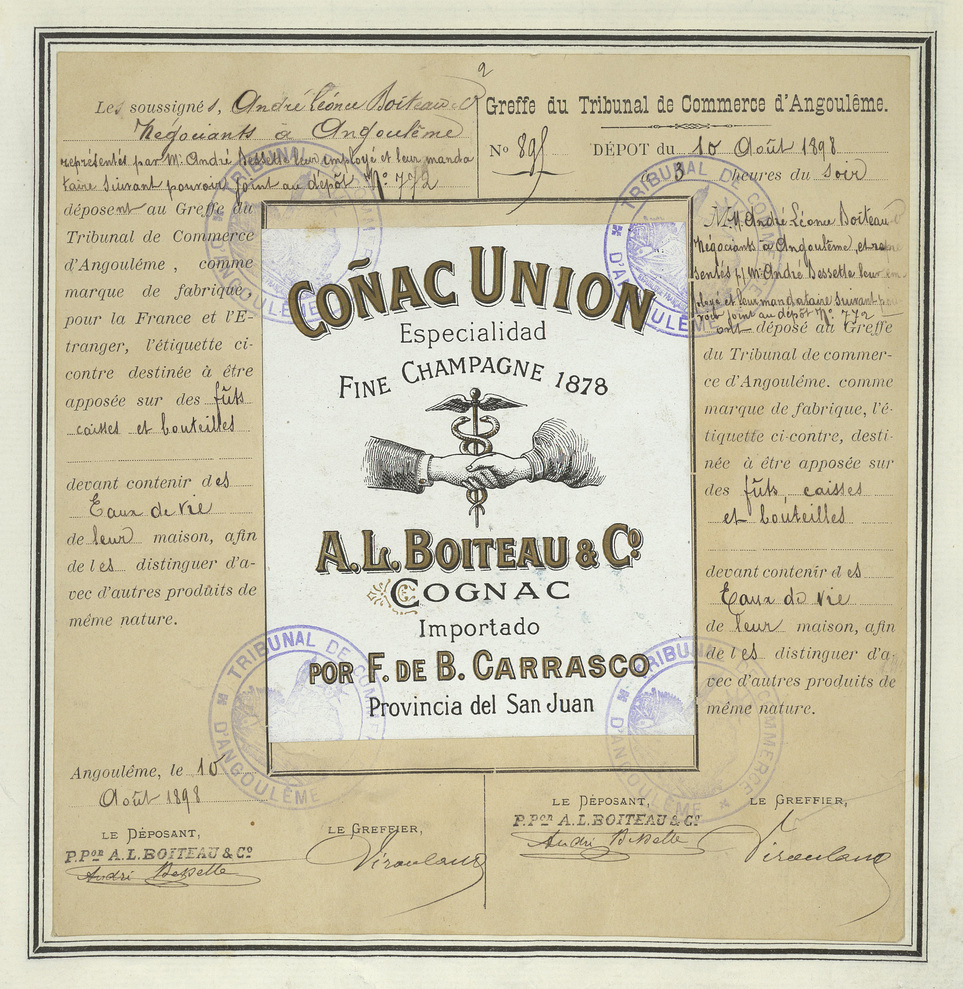 Les soussignés, André Léonce Boiteau & Cie
Négociants à Angoulême
représentés par Mr. André Bessette leur employé et leur manda
taire suivant pouvoir joint au dépôt No. 772
déposent au Greffe du
Tribunal de Commerce
d'Angoulême, comme
marque de fabrique
pour la France et l'E-
tranger, l'étiquette ci-
contre destinée à être
apposée sur des fûts
caisses et bouteilles
devant contenir des
Eaux de vie
de leur maison, afin
de les distinguer d'a-
vec d'autres produits de
même nature.
Angoulême, le 10
Août 1898
LE DÉPOSANT,
P.POR A.L. BOITEAU & Co
André Bessette
LE GREFFIER,
Greffe du Tribunal de Commerce d'Angoulême.
No 895
DÉPOT du 10 Août 1898
à 3 heures du Soir
MM. André Léonce Boiteau &
Négociants à Angoulême, et repré
sentés p/ Mr. André Bessette leur em
ployé et leur mandataire suivant pou
voir joint au dépôt No. 772
ont déposé au Greffe
du Tribunal de commer-
ce d'Angoulême. comme
marque de fabrique, l'é-
tiquette ci-contre, desti-
née à être apposée sur
des fûts, caisses
et bouteilles
devant contenir des
Eaux de vie
de leur maison, afin
de les distinguer d'a-
vec d'autres produits de
même nature.
LE DÉPOSANT,
P.POR A.L. BOITEAU & Co
André Bessette
LE GREFFIER,
COÑAC UNION
Especialidad
FINE CHAMPAGNE 1878
A.L. BOITEAU & Co
COGNAC
Importado
POR F. DE B. CARRASCO
Provincia del San Juan
TRIBUNAL DE COMMERCE
D'ANGOULÊME
TRIBUNAL DE COMMERCE
D'ANGOULÊME
TRIBUNAL DE COMMERCE
D'ANGOULÊME
TRIBUNAL DE COMMERCE
D'ANGOULÊME